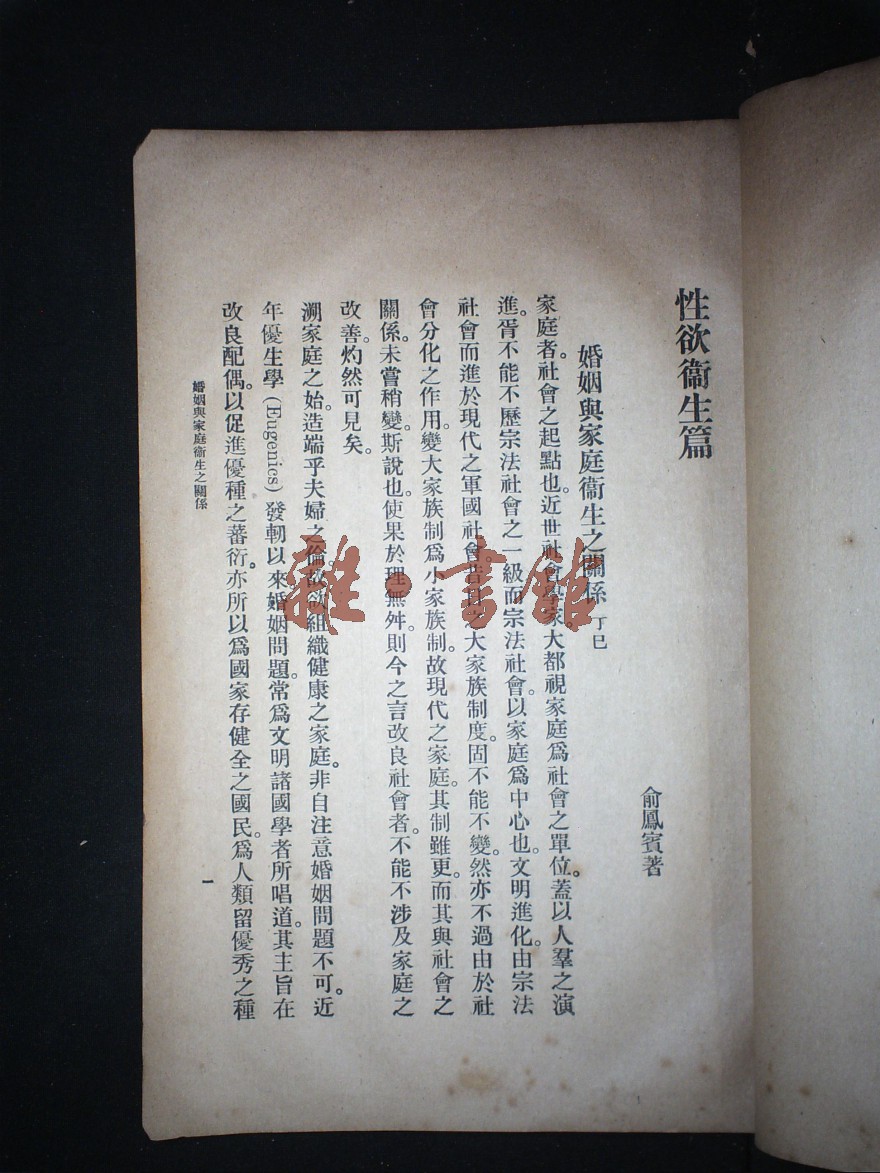 性欲衞生篇
俞鳳賓著
婚姻與家庭衞生之關係 丁巳
家庭者。社會之起點也。近世社會學家。大都視家庭爲社會之單位。蓋以人羣之演
進。胥不能不歷宗法社會之一級。而宗法社會。以家庭爲中心也。文明進化。由宗法
社會而進於現代之軍國社會。昔日之大家族制度。固不能不變。然亦不過由於社
會分化之作用。變大家族制爲小家族制。故現代之家庭。其制雖更。而其與社會之
關係。未嘗稍變。斯說也。使果於理無舛。則今之言改良社會者。不能不涉及家庭之
改善。灼然可見矣。
溯家庭之始。造端乎夫婦之倫。故欲組織健康之家庭。非自注意婚姻問題不可。近
年優生學(Eugenics)發軔以來。婚姻問題。常爲文明諸國學者所唱道。其主旨在
改良配偶。以促進優種之蕃衍。亦所以爲國家存健全之國民。爲人類留優秀之種
婚姻與家庭衞生之關係
一
雜·書館